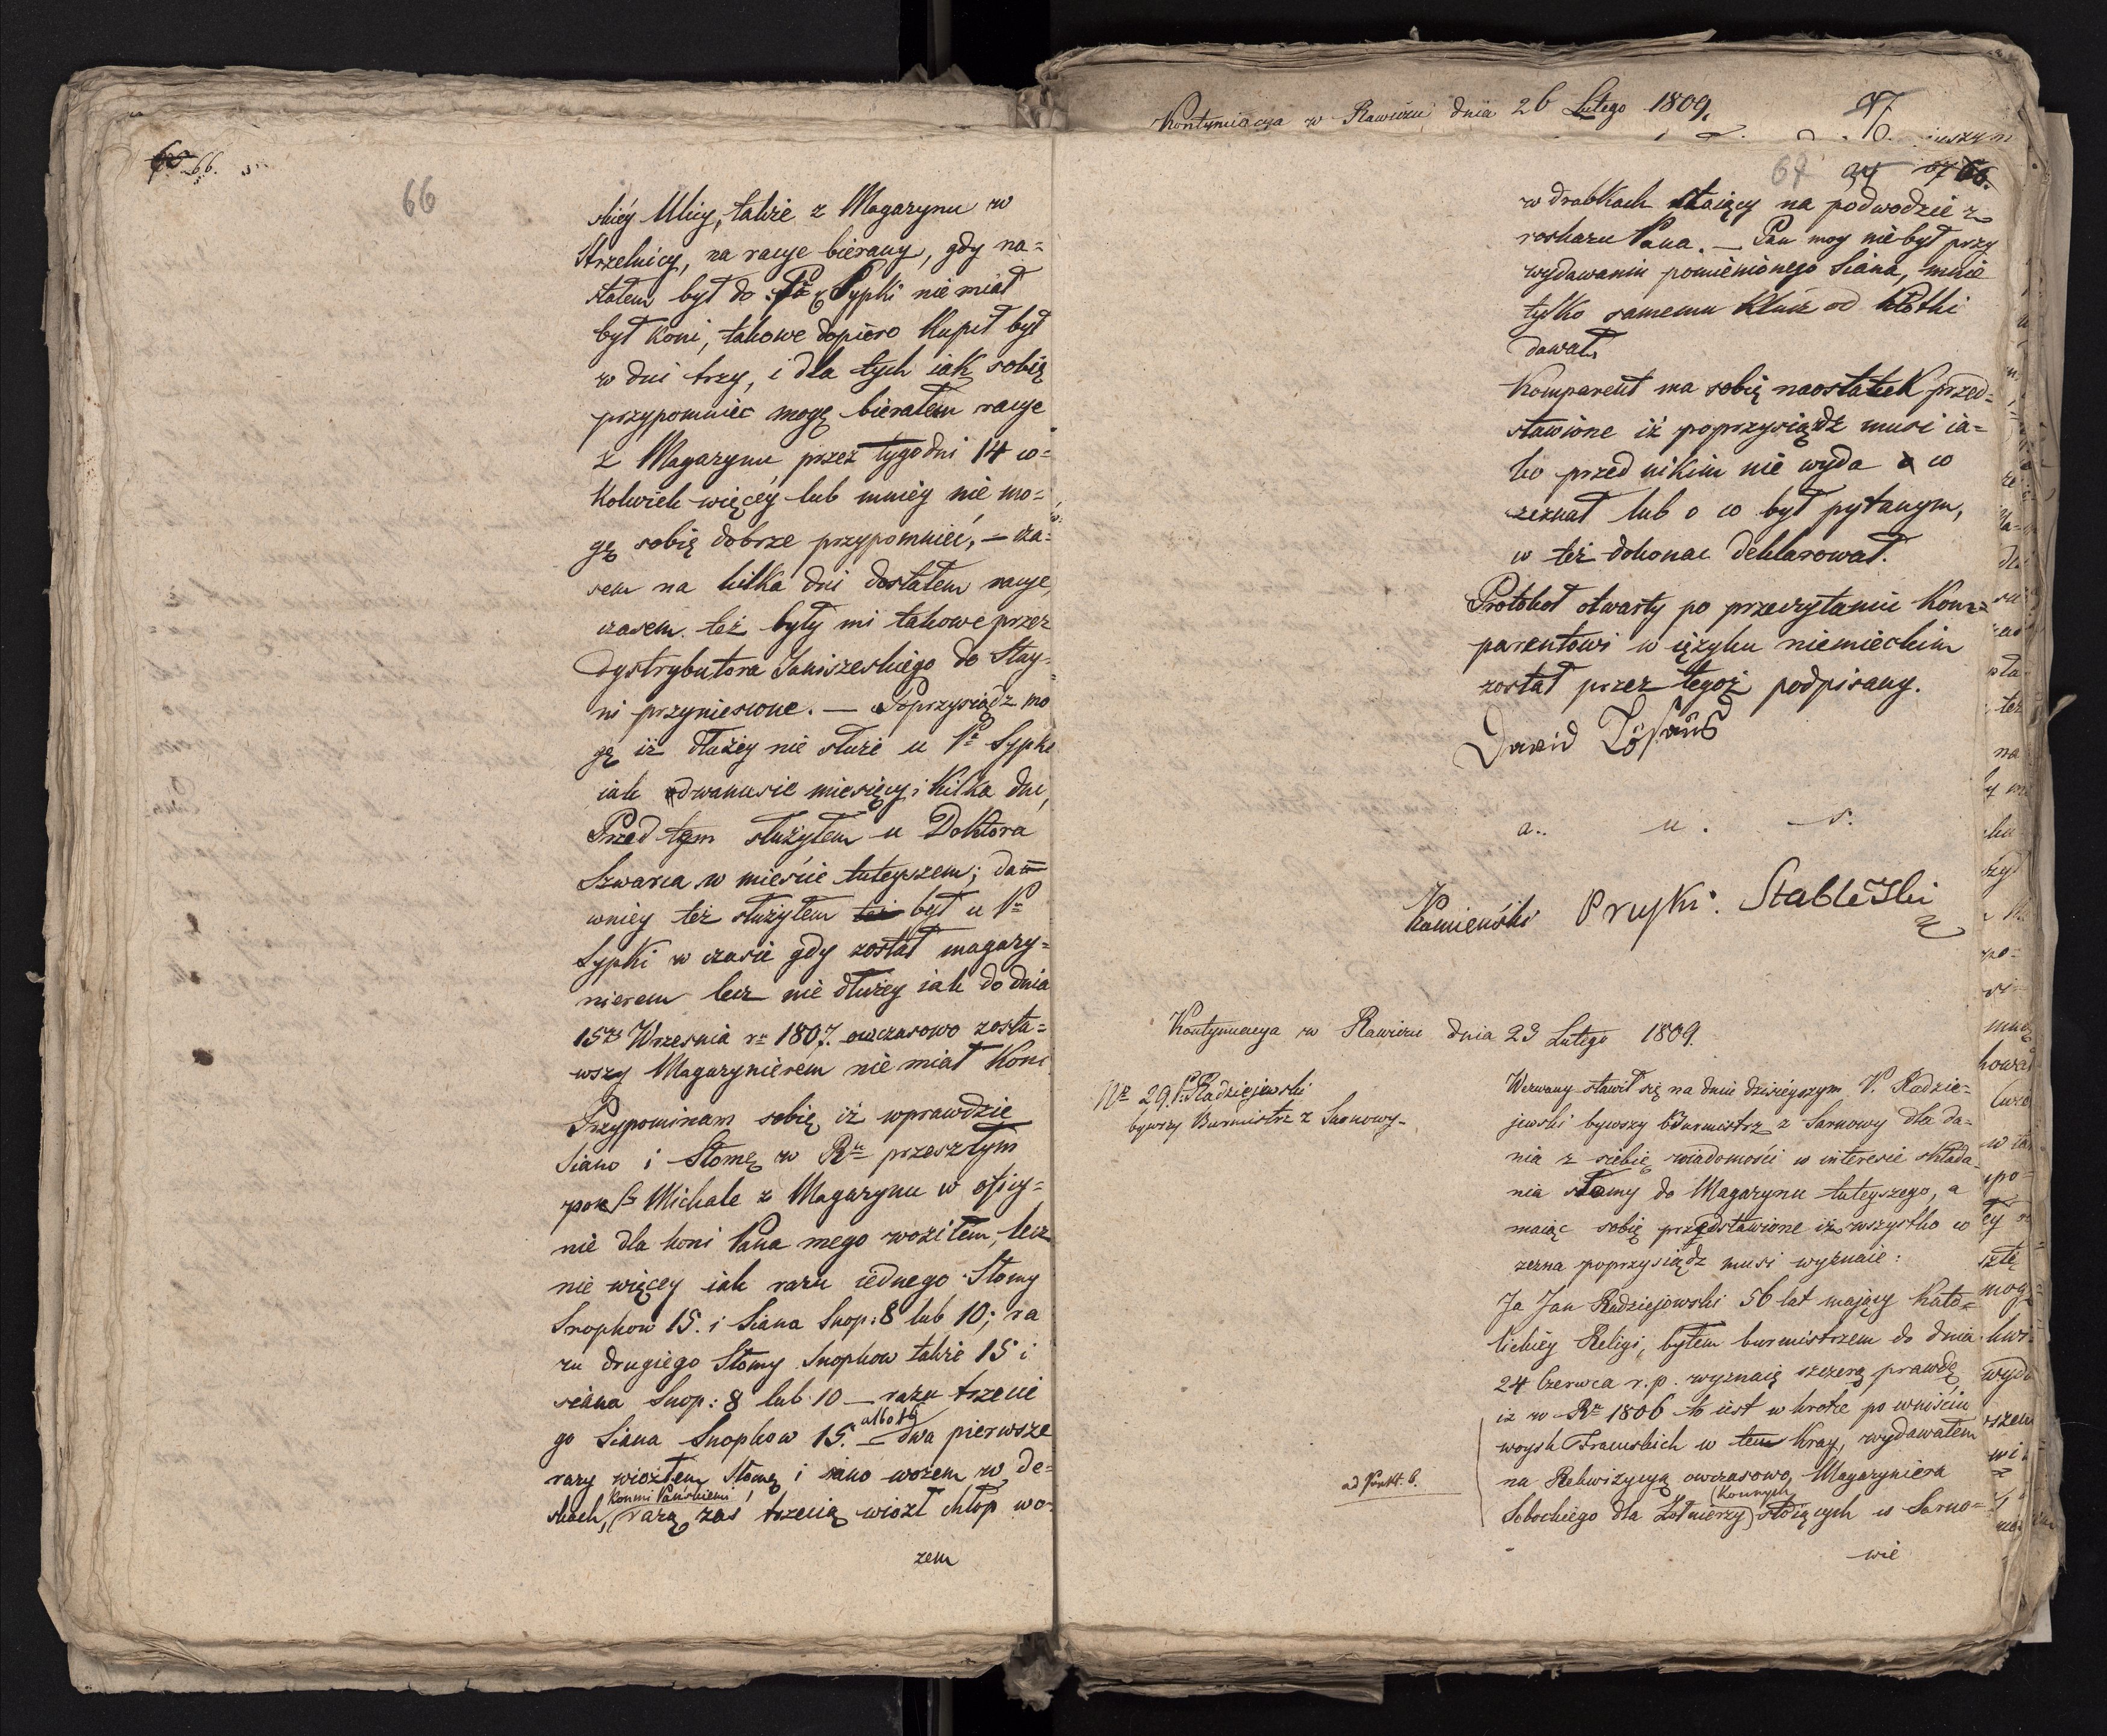 66.
66
skiéy Ulicy, także z Magazynu w
Strzelnicy, na racye bierany, gdy na=
stałem był do Pa Sypki nie miał
był koni, takowe dopiero kupił był
w dni trzy, i dla tych iak sobię
przypomniec mogę bierałem racye
z Magazynu przez tygodni 14 co=
kolwiek więcéy lub mniéy nie mo=
gę sobię dobrze przypomnieć, – cza=
sem na kilka dni dostałem racye,
czasem też były mi takowe przez
dystrybutora Janiszeskiego do Stay=
ni przyniesione. — Poprzysiądz mo
gę iż dłużey nie służe u Pa Sypki
iak dwanascie miesięcy i kilka dni,
Przed tym służyłem u Doktora
Szwarca w mieście tuteyszem; da=
wniey też służyłem też był u Pa
Sypki w czasie gdy został magazy=
nierem lecz nie dłużey iak do dnia
15go Września r. 1807. owczasowo zosta=
wszy Magazynierem nie miał koni
Przypominam sobię iż wprawdzie
Siano i Słomę w Rku przeszłym
po Sm Michale z Magazynu w oficy=
nie dla koni Pana mego woziłem, lecz
nie więcey iak razu iednego Słomy
Snopkow 15. i Siana Snop: 8 lub 10; ra
zu drugiego Słomy Snopkow także 15 i
siana Snop: 8 lub 10 — razu trzecie
albo 16
go Siana Snopkow 15. — dwa pierwsze
razy wiozłem Słomę i siano wozem w de=
konmi Pańskiemi
skach, razą zas trzecią wiozł chłop wo=
zem
Kontynuacya w Rawiczu dnia 26 Lutego 1809.
67
66.
w drabkach staiący na podwodzie z
roskazu Pana. — Pan moy nie był przy
wydawaniu pomienionego Siana, mnie
tylko samemu klucz od kłotki
dawał.
Komparent ma sobię naostatek przed=
stawione iż poprzysiądz musi ia=
ko przed nikim nie wyda co
zeznał lub o co był pytanym,
co też dokonac deklarował.
Protokoł otwarty po przeczytaniu Kom=
parentowi w ięzyku niemieckim
został przez tegoż podpisany.
David
a. u. s.
Kamieński Pruski. Stableski
Kontynuacya w Rawiczu dnia 23 Lutego 1809.
Nr 29. P. Radziejewski
bywszy Burmistrz z Sarnowy.
Wezwany stawił się na dniu dzisieyszym P. Radzie=
jewski bywszy Burmistrz z Sarnowy dla da=
nia z siebię wiadomości w interesie składa=
nia słomy do Magazynu tuteyszego, a
maiąc sobię przedstawione iż wszystko co
zezna poprzysiądz musi wyznaie:
Ja Jan Radziejowski 56 lat mający Kato=
lickiéy Religi, byłem burmistrzem do dnia
24 Czerwca r. p. wyznaię szczerą prawdę
iż w Rku 1806 to iest w krotce po wniściu
woysk Francuskich w ten kray, wydawałem
ad Punkt. 6.
na Rekwizycyą owczasowo Magazyniera
konnych
Sobockiego dla Żołnierzy stoiących w Sarno=
wie